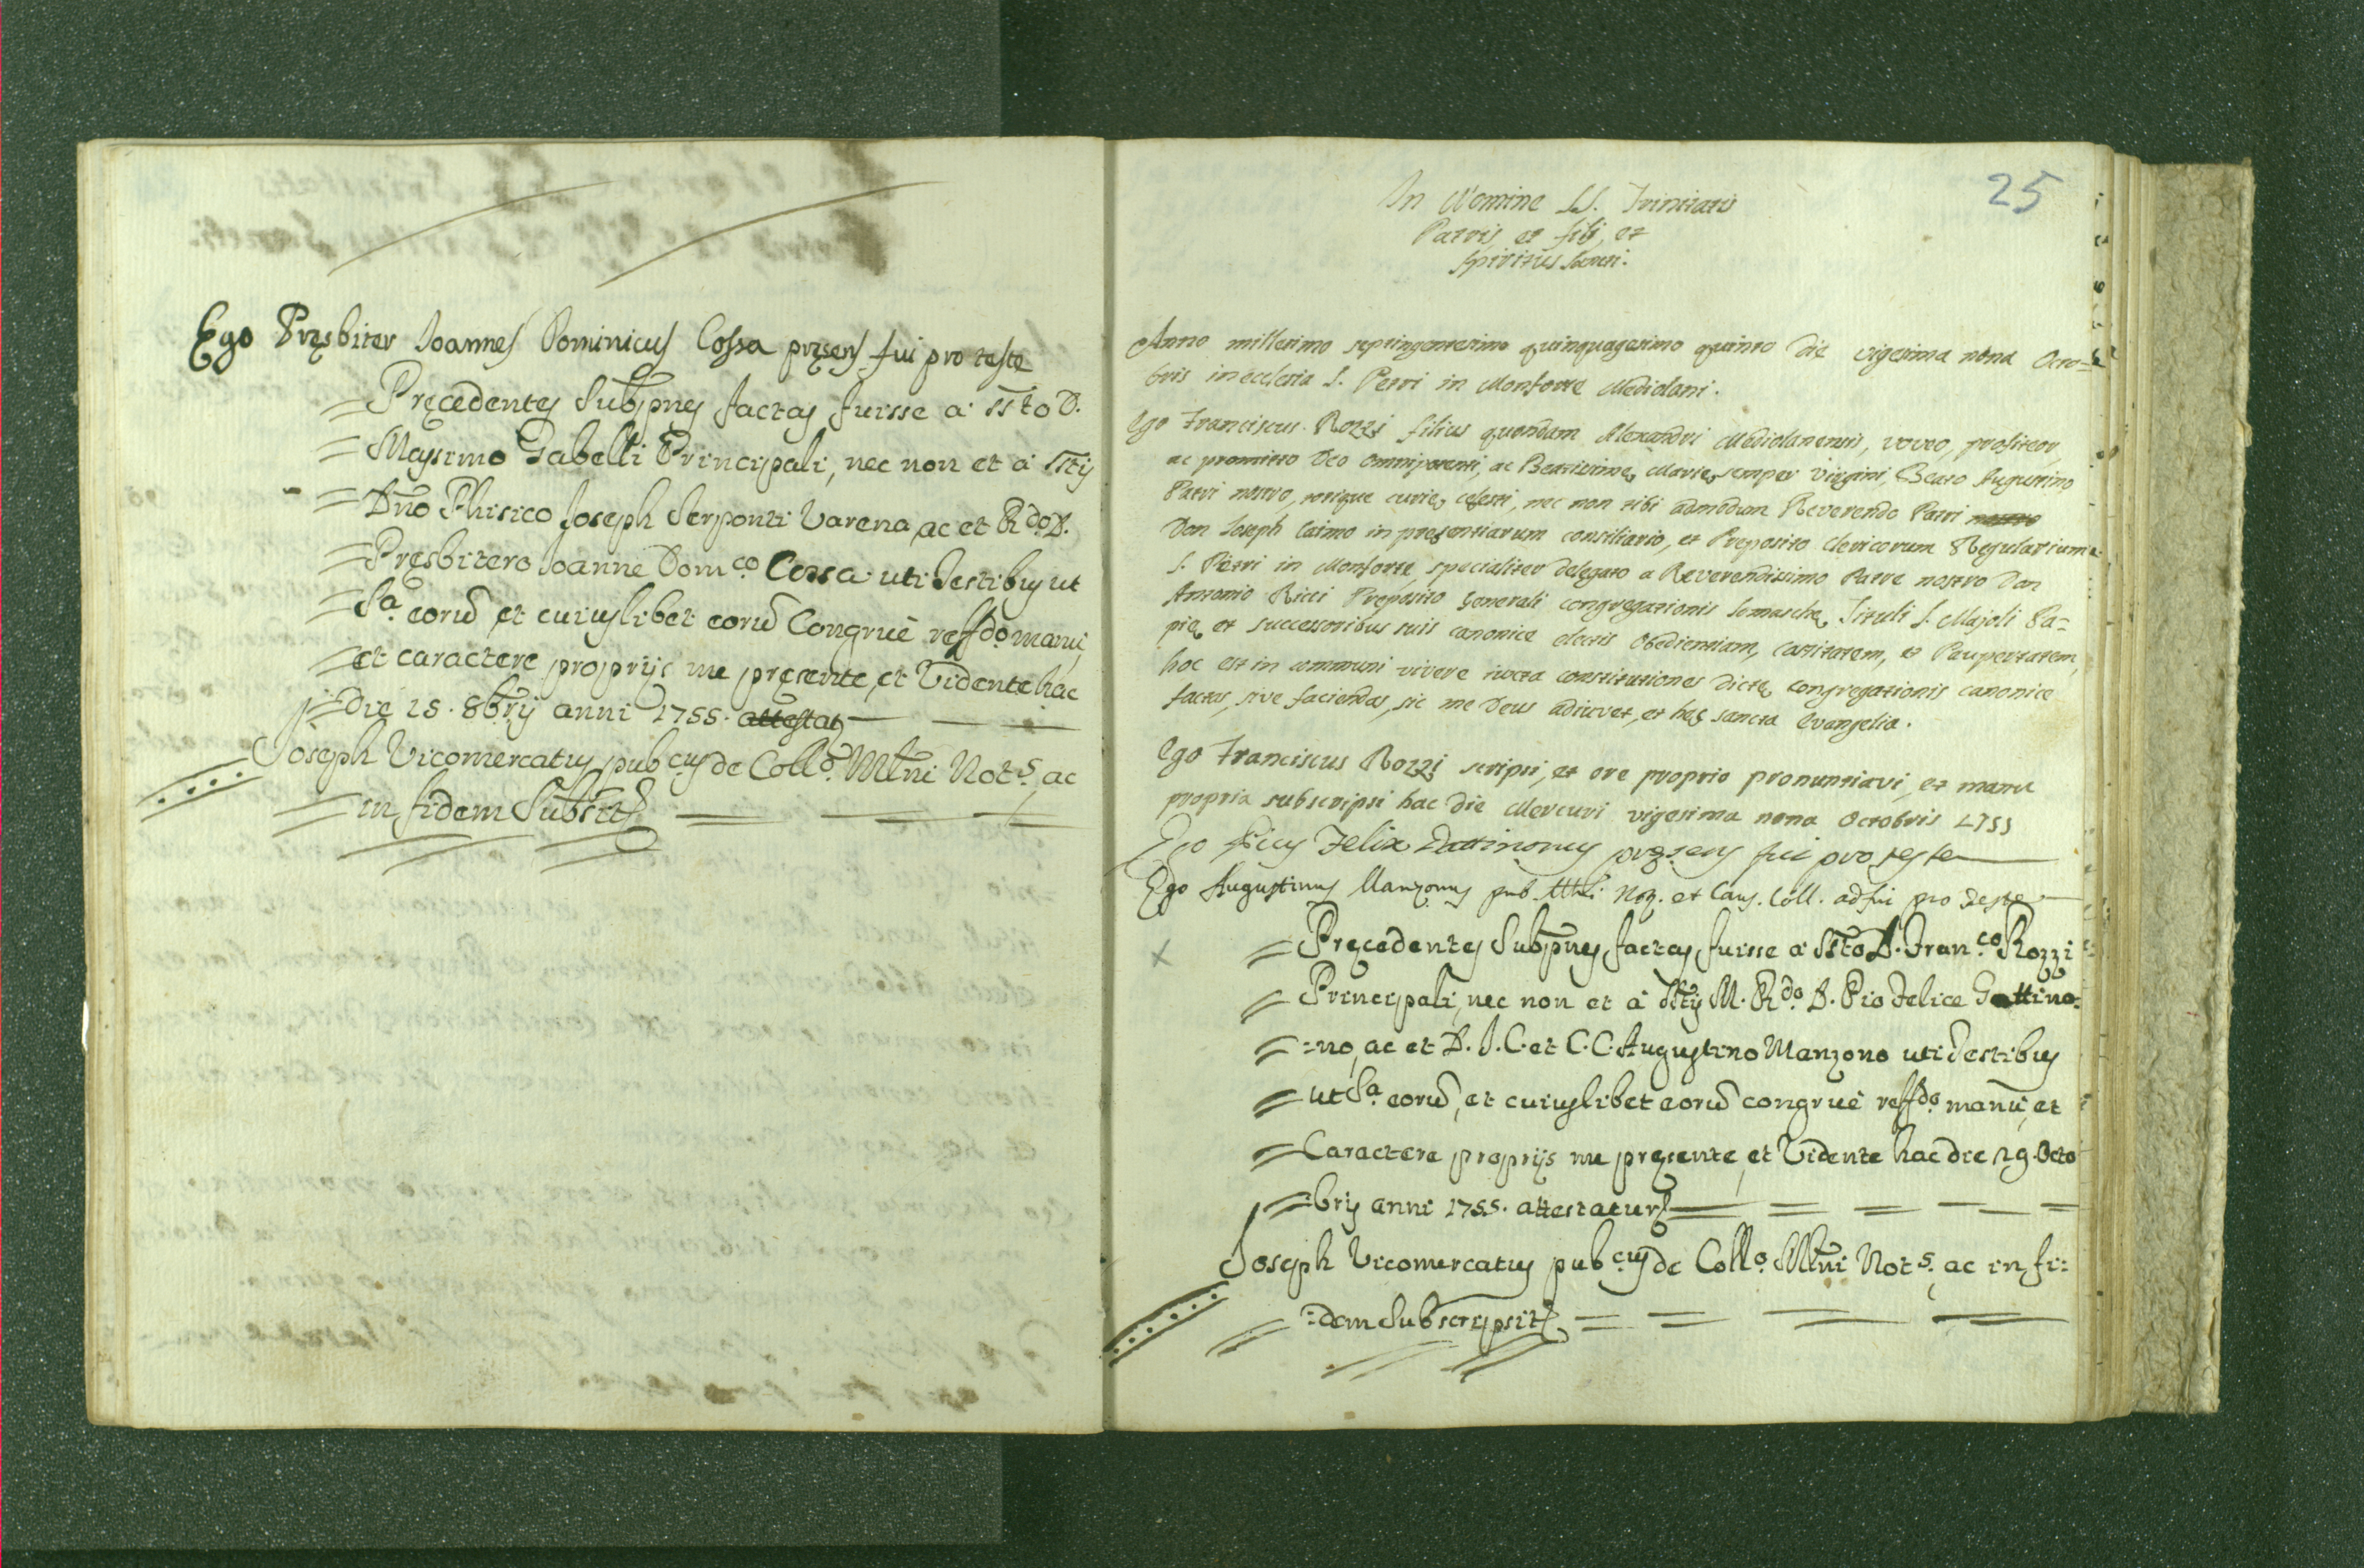 Ego Pręsbiter Joannes Dominicus Cossa pręsens fui pro teste
= Pręcedentes Subp̃nes factas fuisse a ssto D.
= Massimo Gabelli Principali, nec non et à sstis
= Dño Phisico Joseph Serponti Varena, ac et Rdo. D.
= Pręsbitero Joanne Domco. Cossa uti Testibus ut
= Sa. eorũ, et cuiuslibet eorũ Congruè reffdo. manu,
= et caractere proprijs me pręsente, et Vidente hac
= die 15. 8bris anni 1755.
Joseph Vicomercatus pubcus de Collo. Mlni Nots. ac
= in fidem Subsit
25
In Nomine SS. Trinitatis
Patris, et filij, et
Spiritus Sancti.
Anno millesimo septingentesimo quinquagesimo quinto die vigesima nona Octo=
bris in ecclesia S. Petri in Monforte Mediolani.
Ego Franciscus Rozzi filius quondam Alexandri Mediolanensis, voveo, profiteor,
ac promitto Deo Omnipotenti, ac Beatissimę Marię semper Virgini, Beato Augustino
Patri nostro, totique curię cęlesti, nec non tibi admodum Reverendo Patri nostro
Don Joseph Caimo in presentiarum consiliario, et Preposito Clericorum Regularium
S. Petri in Monforte, specialiter delegato a Reverendissimo Patre nostro Don
Antonio Ricci Preposito Generali congregationis Somaschę, Tituli S. Majoli Pa=
pię, et successoribus suis canonice electis Obedientiam, castitatem, et Paupertatem,
hoc est in communi vivere iuxta constitutiones dictę congregationis canonice
factas, sive faciendas, sic me Deus adiuvet, et hęc sancta Evangelia.
Ego Franciscus Rozzi scripsi, et ore proprio pronuntiavi, et manu
propria subscripsi hac die Mercuri vigesima nona Octobris 1755
Ego Pius Felix Gattinonus pręsens fui pro teste
Ego Augustinus Manzonus pub. Mli. Not. et Caus. Coll. adfui pro Teste
x
= Pręcedentes Subp̃nes factas fuisse à ssto D. Franco. Rozzi
= Principali, nec non et à sstis M. Rdo. D. Pio Felice Gattino:
= :no, ac et D. J. C. et C. C. Augustino Manzono uti Testibus
= ut Sa. eorũ, et cuiuslibet eorũ congruè reffdo. manu, et
= Caractere proprijs me pręsente, et Vidente hac die 29. Octo
= :bris anni 1755. attestatur
Joseph Vicomercatus pubcus de Collo. Mlni Nots. ac in fi:
= :dem Subscripsit